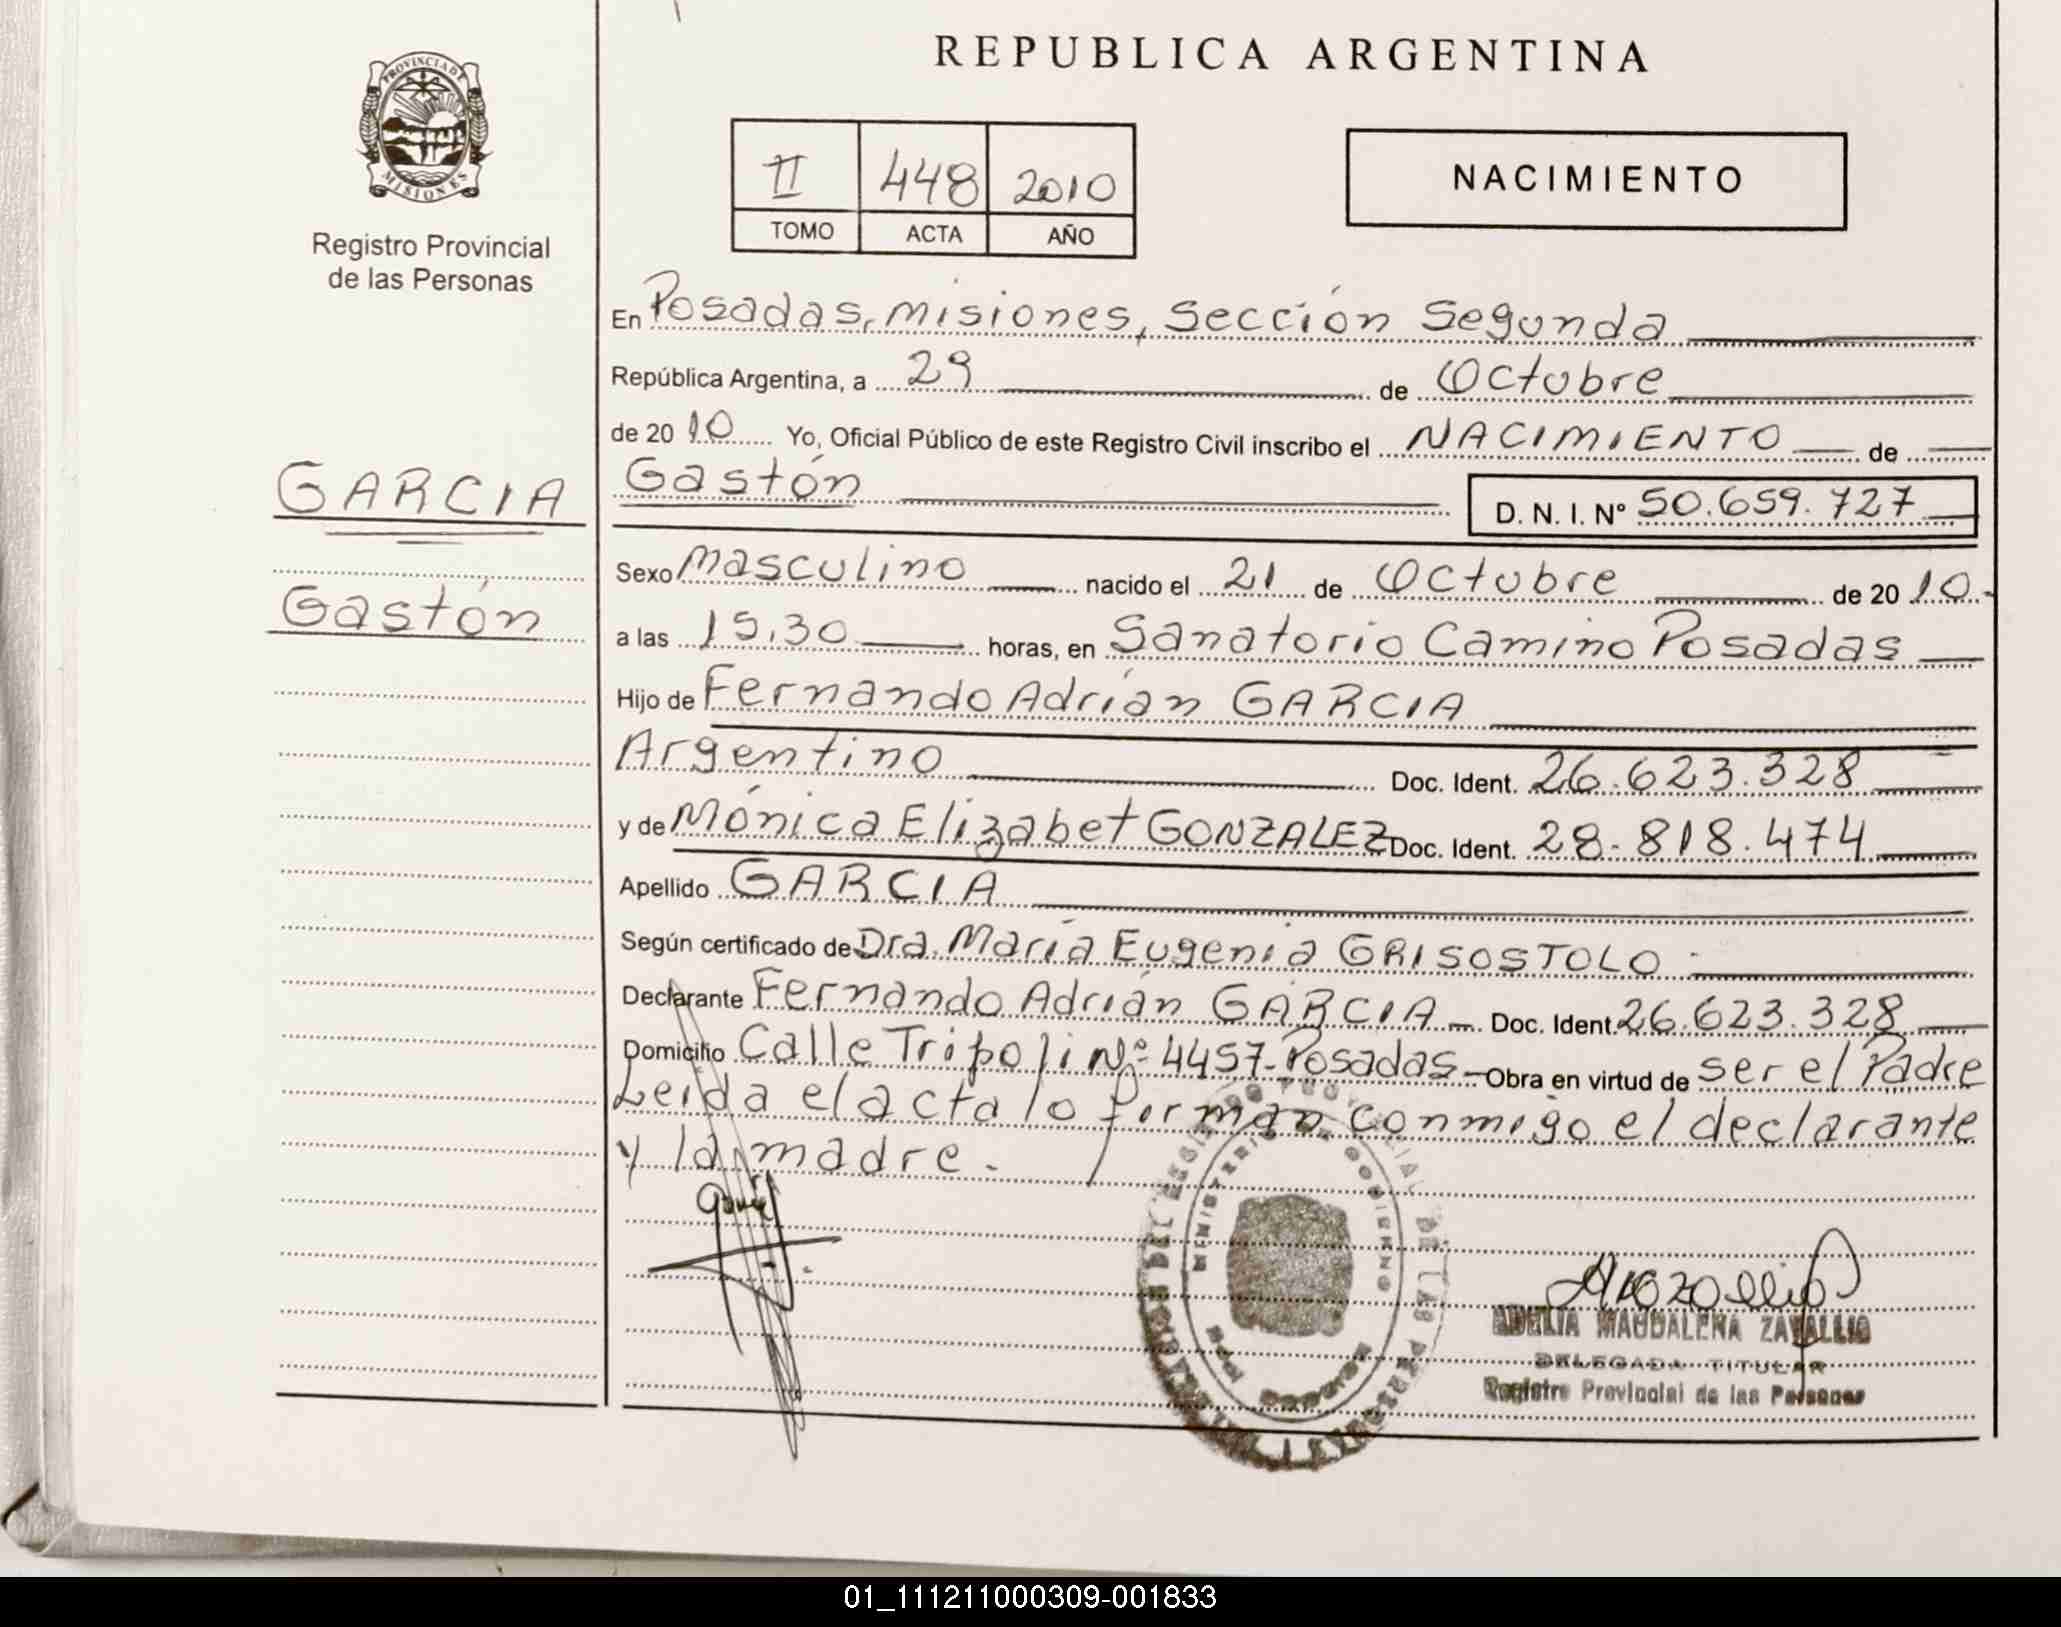 REPUBLICA ARGENTINA
PROVINCIA DE
MISIONES
Registro Provincial
de las Personas
II 448 2010
TOMO ACTA AÑO
NACIMIENTO
En Posadas, Misiones, Sección Segunda
República Argentina, a 29 de Octubre
de 2010 Yo, Oficial Público de este Registro Civil inscribo el NACIMIENTO de
GARCIA
Gastón D. N. I. N° 50.659.727
Sexo Masculino nacido el 21 de Octubre de 2010.-
Gastón
a las 15,30 horas, en Sanatorio Camino Posadas
Hijo de Fernando Adrián GARCIA
Argentino Doc. Ident. 26.623.328
y de Mónica Elizabet GONZALEZ Doc. Ident. 28.818.474
Apellido GARCIA
Según certificado de Dra. María Eugenia GRISOSTOLO
Declarante Fernando Adrián GARCIA - Doc. Ident. 26.623.328
Domicilio Calle Tripoli Nº 4457- Posadas - Obra en virtud de ser el Padre
Leida el acta lo firman conmigo el declarante
y la madre.
MINISTERIO DE GOBIERNO
DELEGADA TITULAR
Registro Provincial de las Personas
01_111211000309-001833